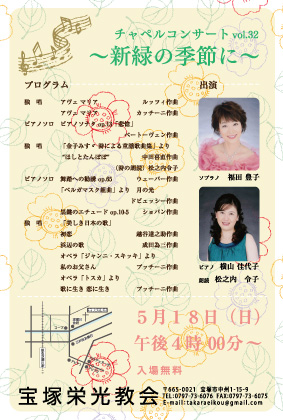 チャペルコンサート vol.32
～新緑の季節に～
プログラム
独 唱 アヴェ マリア ルッツィ作曲
アヴェ マリア カッチーニ作曲
ピアノソロ ピアノソナタ op.13「悲愴」
ベートーヴェン作曲
独 唱 「金子みすゞ詩による童謡歌曲集」より
"ほしとたんぽぽ" 中田喜直作曲
(詩の朗読) 松之内令子
ピアノソロ 舞踏への勧誘 op.65 ウェーバー作曲
「ベルガマスク組曲」より 月の光
ドビュッシー作曲
黒鍵のエチュード op.10-5 ショパン作曲
独 唱 「美しき日本の歌」
初恋 越谷達之助作曲
浜辺の歌 成田為三作曲
オペラ「ジャンニ・スキッキ」より
私のお父さん プッチーニ作曲
オペラ「トスカ」より
歌に生き 恋に生き プッチーニ作曲
出演
ソプラノ 福田 豊子
ピアノ 横山 佳代子
朗読 松之内 令子
5月18日（日）
午後4時00分～
入場無料
宝塚栄光教会
〒665-0021 宝塚市中州1-15-9
TEL:0797-73-6076 FAX:0797-73-6075
E-mail:takaraeikou@gmail.com